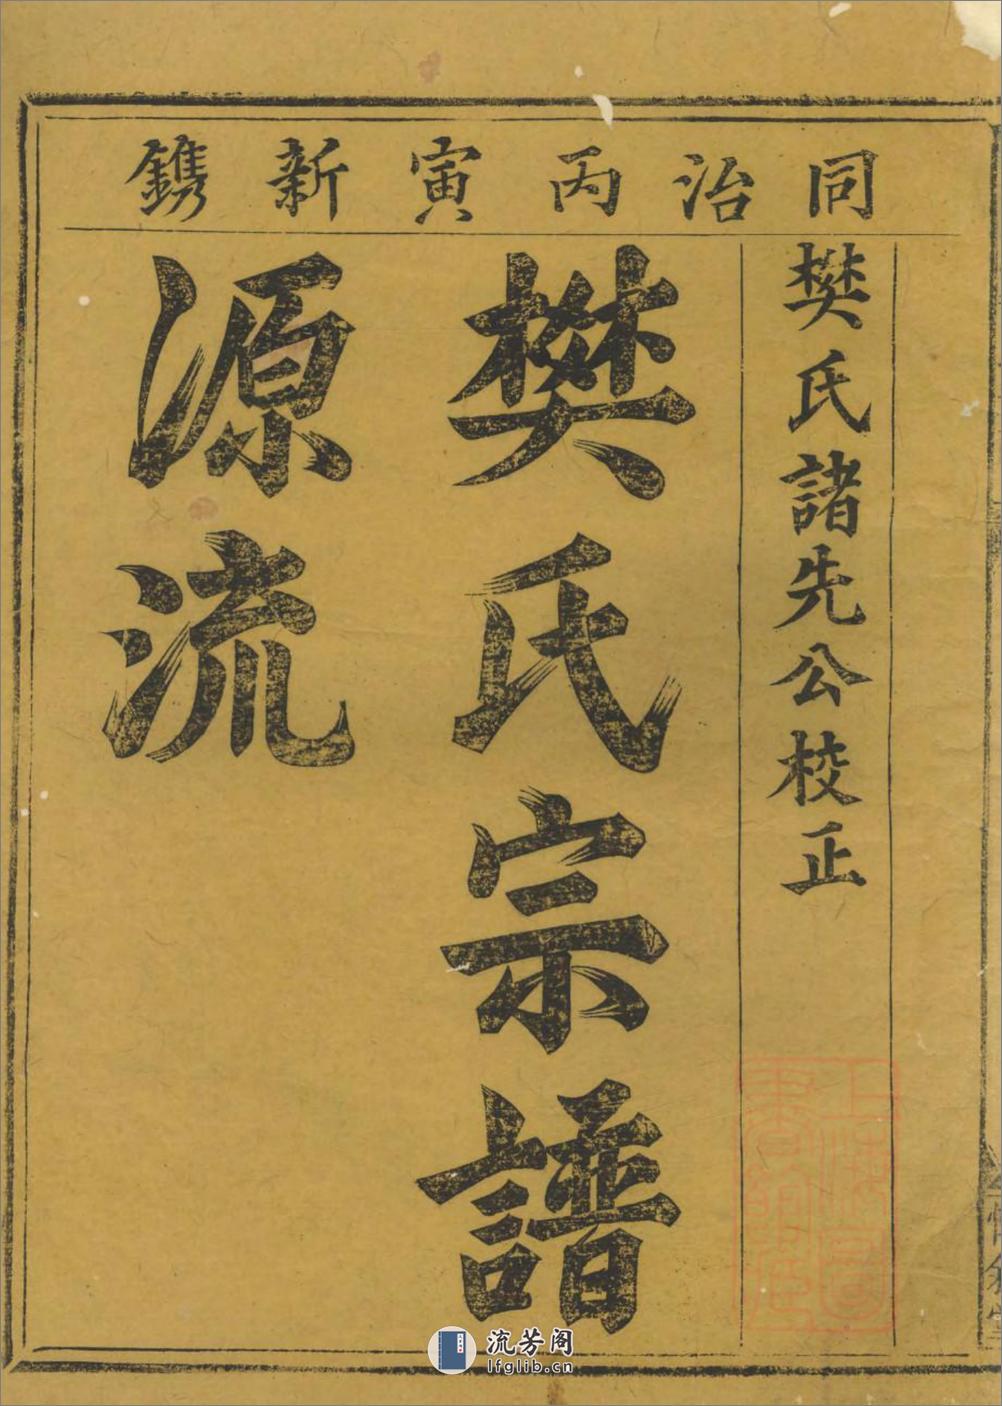 同治丙寅新鐫
樊氏諸先公校正
樊氏宗譜
源流
流芳阁
lfglib.cn